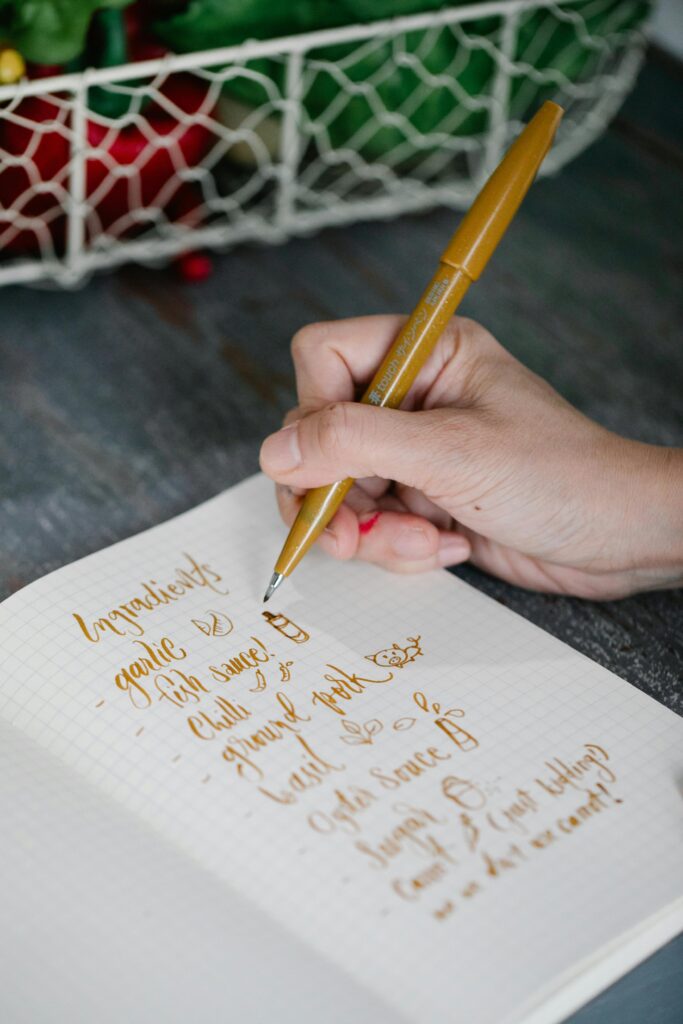 touch サインペン
Ingradients
- garlic
- fish sauce!
- chilli
- ground pork
- basil
- Oyster sauce
- Sugar
- carrot (just kidding!)
we don't carrot!